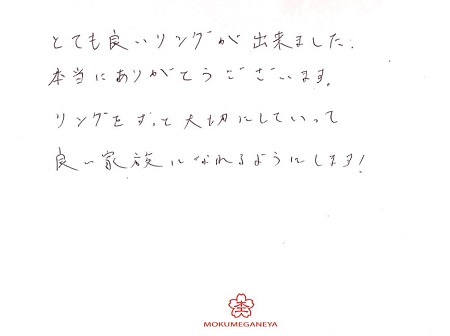 とても良いリングが出来ました.
本当にありがとうございます。
リングをずっと大切にしていって
良い家族になれるようにします!
MOKUMEGANEYA